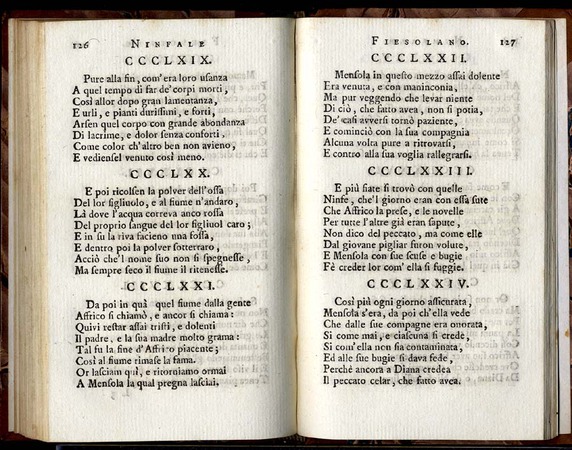 126 NINFALE
CCCLXIX.
Pure alla fin, com'era loro usanza
A quel tempo di far de' corpi morti,
Così allor dopo gran lamentanza,
E urli, e pianti durissimi, e forti,
Arsen quel corpo con grande abondanza
Di lacrime, e dolor senza conforti.
Come color ch'altro ben non avieno,
E vediensel venuto così meno.
CCCLXX.
E poi ricolsen la polver dell'ossa
Del lor figliuolo, e al fiume n'andaro,
Là dove l'acqua correva anco rossa
Del proprio sangue del lor figliuol caro;
E in su la riva facieno una fossa,
E dentro poi la polver sotterraro,
Acciò che'l nome suo non si spegnesse,
Ma sempre seco il fiume il ritenesse.
CCCLXXI.
Da poi in quà quel fiume dalla gente
Affrico si chiamò, e ancor si chiama:
Quivi restar assai tristi, e dolenti
Il padre, e la sua madre molto grama:
Tal fu la fine d'Affrico piacente;
Così al fiume rimase la fama.
Or lasciam quì, e ritorniamo ormai
A Mensola la qual pregna lasciai,
FIESOLANO. 127
CCCLXXII.
Mensola in questo mezzo assai dolente
Era venuta, e con maninconia,
Ma pur veggendo che levar niente
Di ciò, che fatto avea, non si potia,
De' casi avversi tornò paziente,
E cominciò con la sua compagnia
Alcuna volta pure a ritrovarsi,
E contro alla sua voglia rallegrarsi.
CCCLXXIII.
E più fiate si trovò con quelle
Ninfe, che'l giorno eran con essa sute
Che Affrico la prese, e le novelle
Per tutte l'altre già eran sapute,
Non dico del peccato, ma come elle
Dal giovane pigliar furon volute,
E Mensola con sue scuse e bugie
Fè creder lor com'ella si fuggie.
CCCLXXIV.
Così più ogni giorno assicurata,
Mensola s'era, da poi ch'ella vede
Che dalle sue compagne era onorata,
Si come mai, e ciascuna si crede,
Si com'ella non sia contaminata,
Ed alle sue bugie si dava fede,
Perchè ancora a Diana credea
Il peccato celar, che fatto avea.